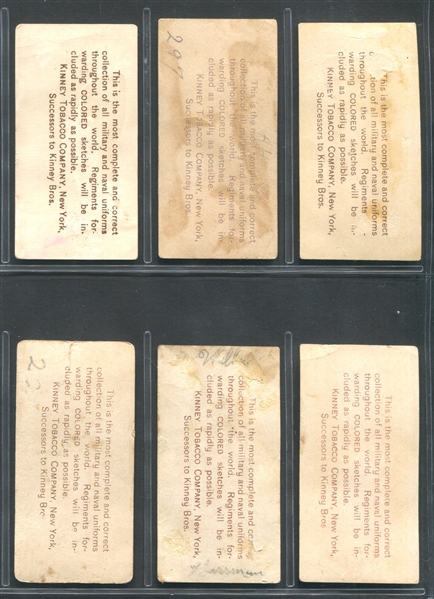 This is the most complete and correct
collection of all military and naval uniforms
throughout the world. Regiments for-
warding COLORED sketches will be in-
cluded as rapidly as possible.
KINNEY TOBACCO COMPANY, New York,
Successors to Kinney Bros.
This is the most complete and correct
collection of all military and naval uniforms
throughout the world. Regiments for-
warding COLORED sketches will be in-
cluded as rapidly as possible.
KINNEY TOBACCO COMPANY, New York,
Successors to Kinney Bros.
This is the most complete and correct
of all military and naval uniforms
throughout the world. Regiments
warding COLORED sketches will be
cluded as rapidly as possible.
KINNEY TOBACCO COMPANY, New York,
Successors to Kinney Bros.
This is the most complete and correct
collection of all military and naval uniforms
throughout the world. Regiments for-
warding COLORED sketches will be in-
cluded as rapidly as possible.
KINNEY TOBACCO COMPANY, New York,
Successors to Kinney Bro
This is the most complete and correc
collection of all military and naval uniforms
throughout the world. Regiments for-
warding COLORED sketches will be in-
cluded as rapidly as possible.
KINNEY TOBACCO COMPANY, New York,
Successors to Kinney Bros.
This is the most complete and correct
collection of all military and naval uniforms
throughout the world. Regiments for-
warding COLORED sketches will be in-
cluded as rapidly as possible.
KINNEY TOBACCO COMPANY, New York,
Successors to Kinney Bros.